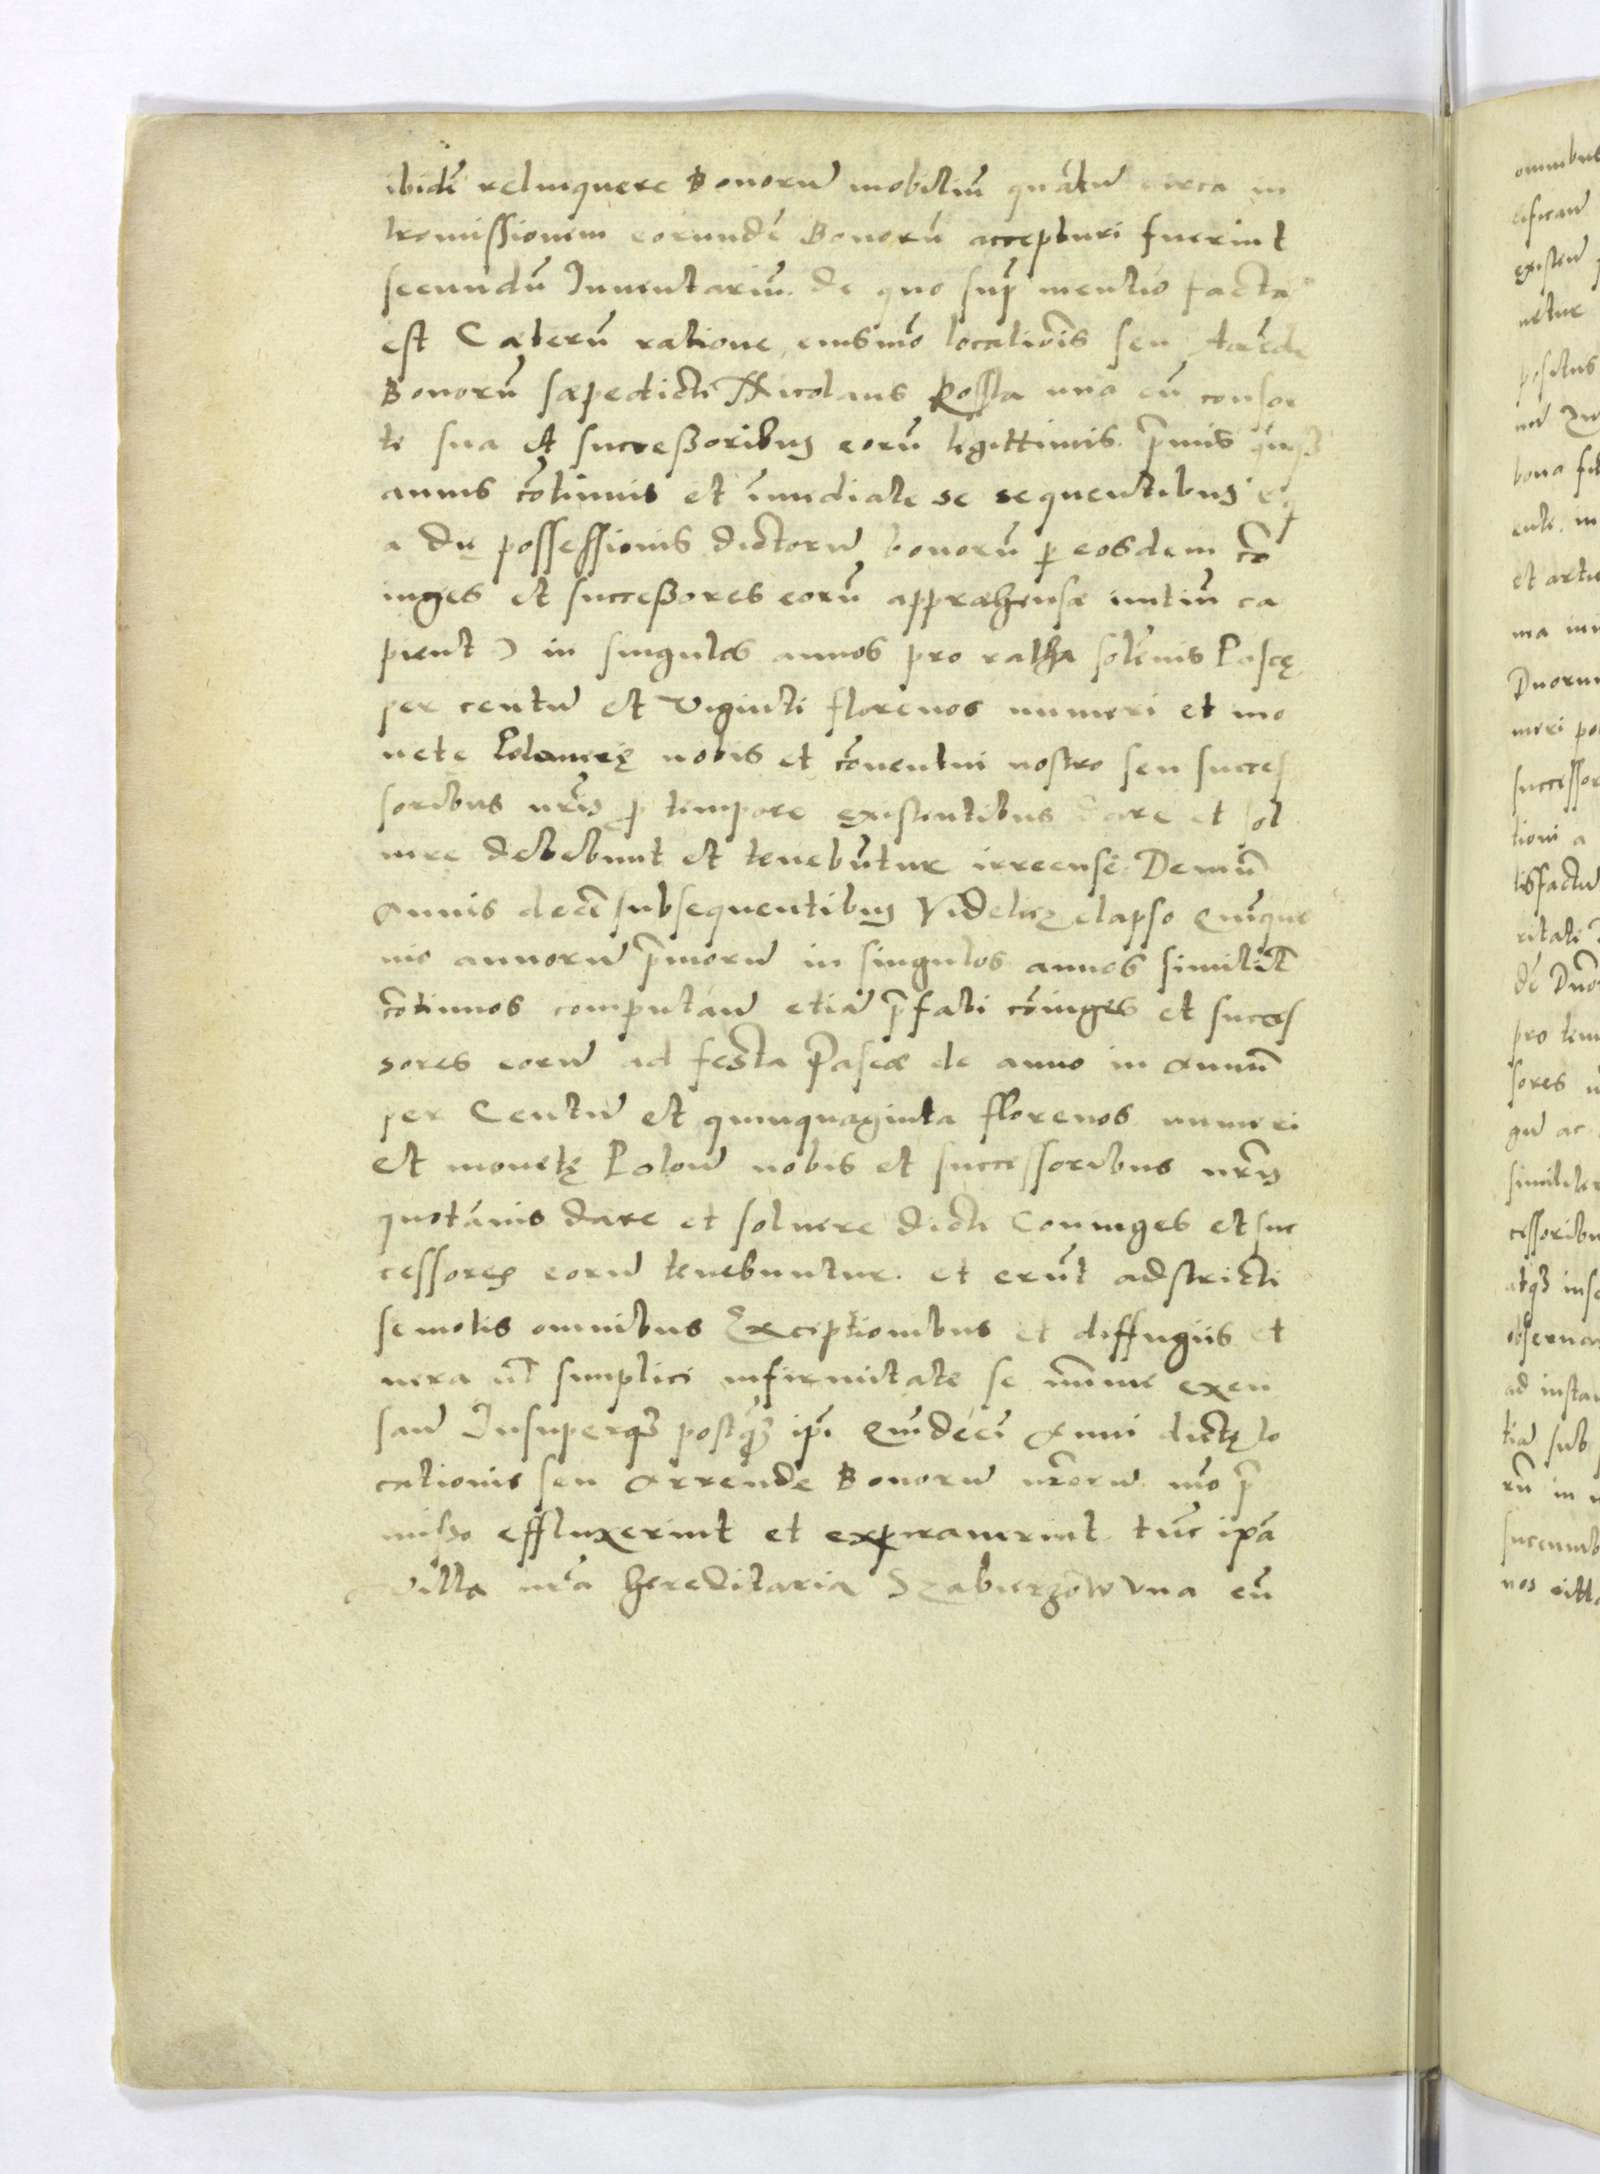 ibidē relinquere Bonorū mobiliū quātū circa in
tromissionem eorundē Bonorū accepturi fuerint
secundū Inuentariū de quo sup̄ mentio facta
est Caeterū ratione eiusmō locatiōis seu Arēde
Bonorū saepedicti Nicolaus Rossa una cū consor
te sua et successoribus eorū legittimis p̄mis
annis cōtinuis et īmediate se sequentibus
a die possessionis dictorū bonorū p eosdem cō
iuges et successores eorū appraehensae initiū ca
pient) in singulos annos pro ratha solēnis Pascę
per centū et viginti florenos numeri et mo
nete Polonicę nobis et cōuentui nostro seu succes
soribus nr̄is p tempore existentibus dare et sol
uere debebunt et tenebūtur irrecuse Demū
Annis decē subsequentibus Videlicz elapso quīque
nio annorū p̄morū in singulos annos similit̄
cōtinuos computān etiā p̄fati cōiuges et succes
sores eorū ad festa Pascae de anno in Annū
per Centū et quinquaginta florenos numeri
et monetę Polon̄ nobis et successoribus nr̄is
quotānis dare et soluere dicti Coniuges et suc
cessores eorū tenebuntur et erūt adstricti
semotis omnibus Exceptionibus et diffugiis et
uera ul̄ simplici infirmitate se mīme excu
san̄ Insuperqꝫ postqꝫ ip̄i Quīdecī Anni dictę lo
cationis seu Arrende Bonorū nr̄orū mō p̄
misso effluxerint et expirauerint tūc ip̄a
villa nr̄a hereditaria Szabierzow vna cū